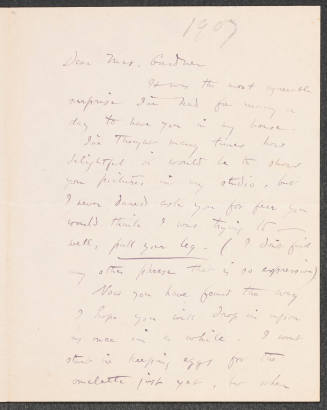 1907
Dear Mrs. Gardner
It was the most agreeable
surprise I've had for many a
day to have you in my house.
I've thought many times how
delightful it would be to show
you pictures in my studio, but
I never dared ask you for fear you
would think I was trying to —
well, pull your leg. (I don't find
any other phrase that is so expressive)
Now you have found the way
I hope you will drop in upon
us once in a while. I wont
start in keeping eggs for the
omelette just yet, but when